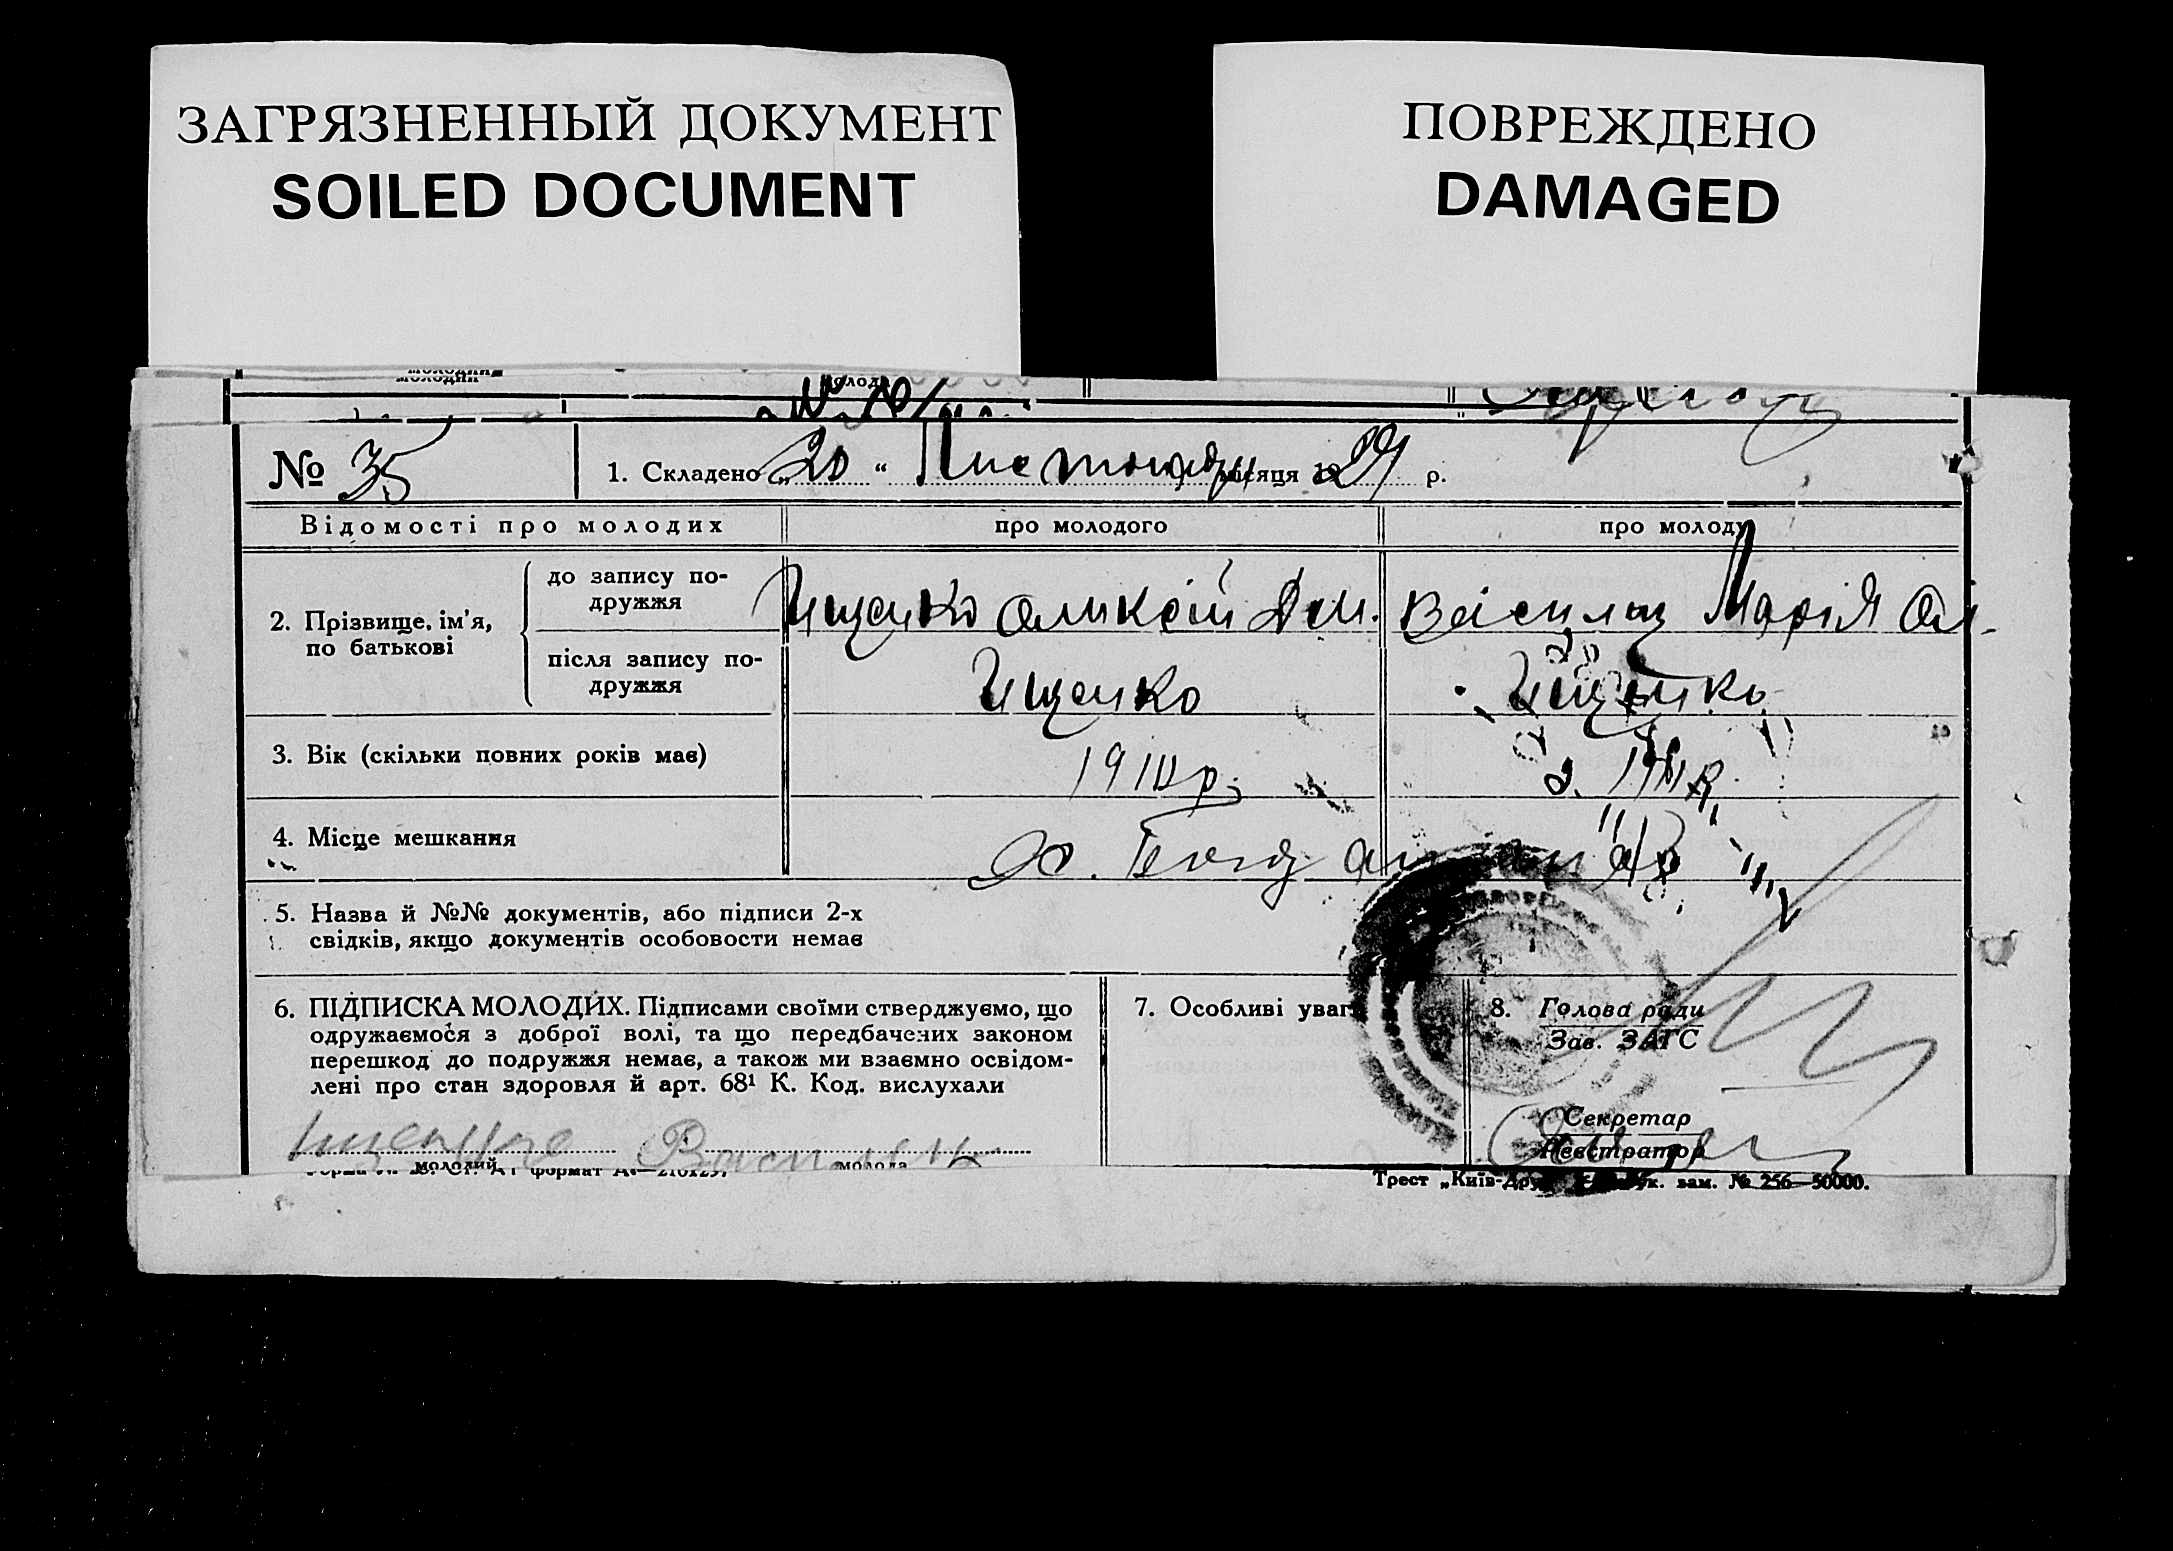 ЗАГРЯЗНЕННЫЙ ДОКУМЕНТ
SOILED DOCUMENT
ПОВРЕЖДЕНО
DAMAGED
№ 35
1. Складено „20“ Листопаду місяця 1929 р.
Відомості про молодих
про молодого
про молоду
2. Прізвище, ім’я,
по батькові
до запису по-
дружжя
Ищенко Оликсій Дем.
Василец Марія Ол.
після запису по-
дружжя
Ищенко
Ищенко
3. Вік (скільки повних років має)
1910 р.
4. Місце мешкання
х.
5. Назва й №№ документів, або підписи 2-х
свідків, якщо документів особовости немає
6. ПІДПИСКА МОЛОДИХ. Підписами своїми стверджуємо, що
одружаємося з доброї волі, та що передбачених законом
перешкод до подружжя немає, а також ми взаємно освідом-
лені про стан здоровля й арт. 68¹ К. Код. вислухали
Ищенко
молодий
молода
7. Особливі уваги
8. Голова ради
Зав. ЗАГС
Секретар
Реєстратор
формат
Трест „Київ-Друк“ зам. № 256—50000.